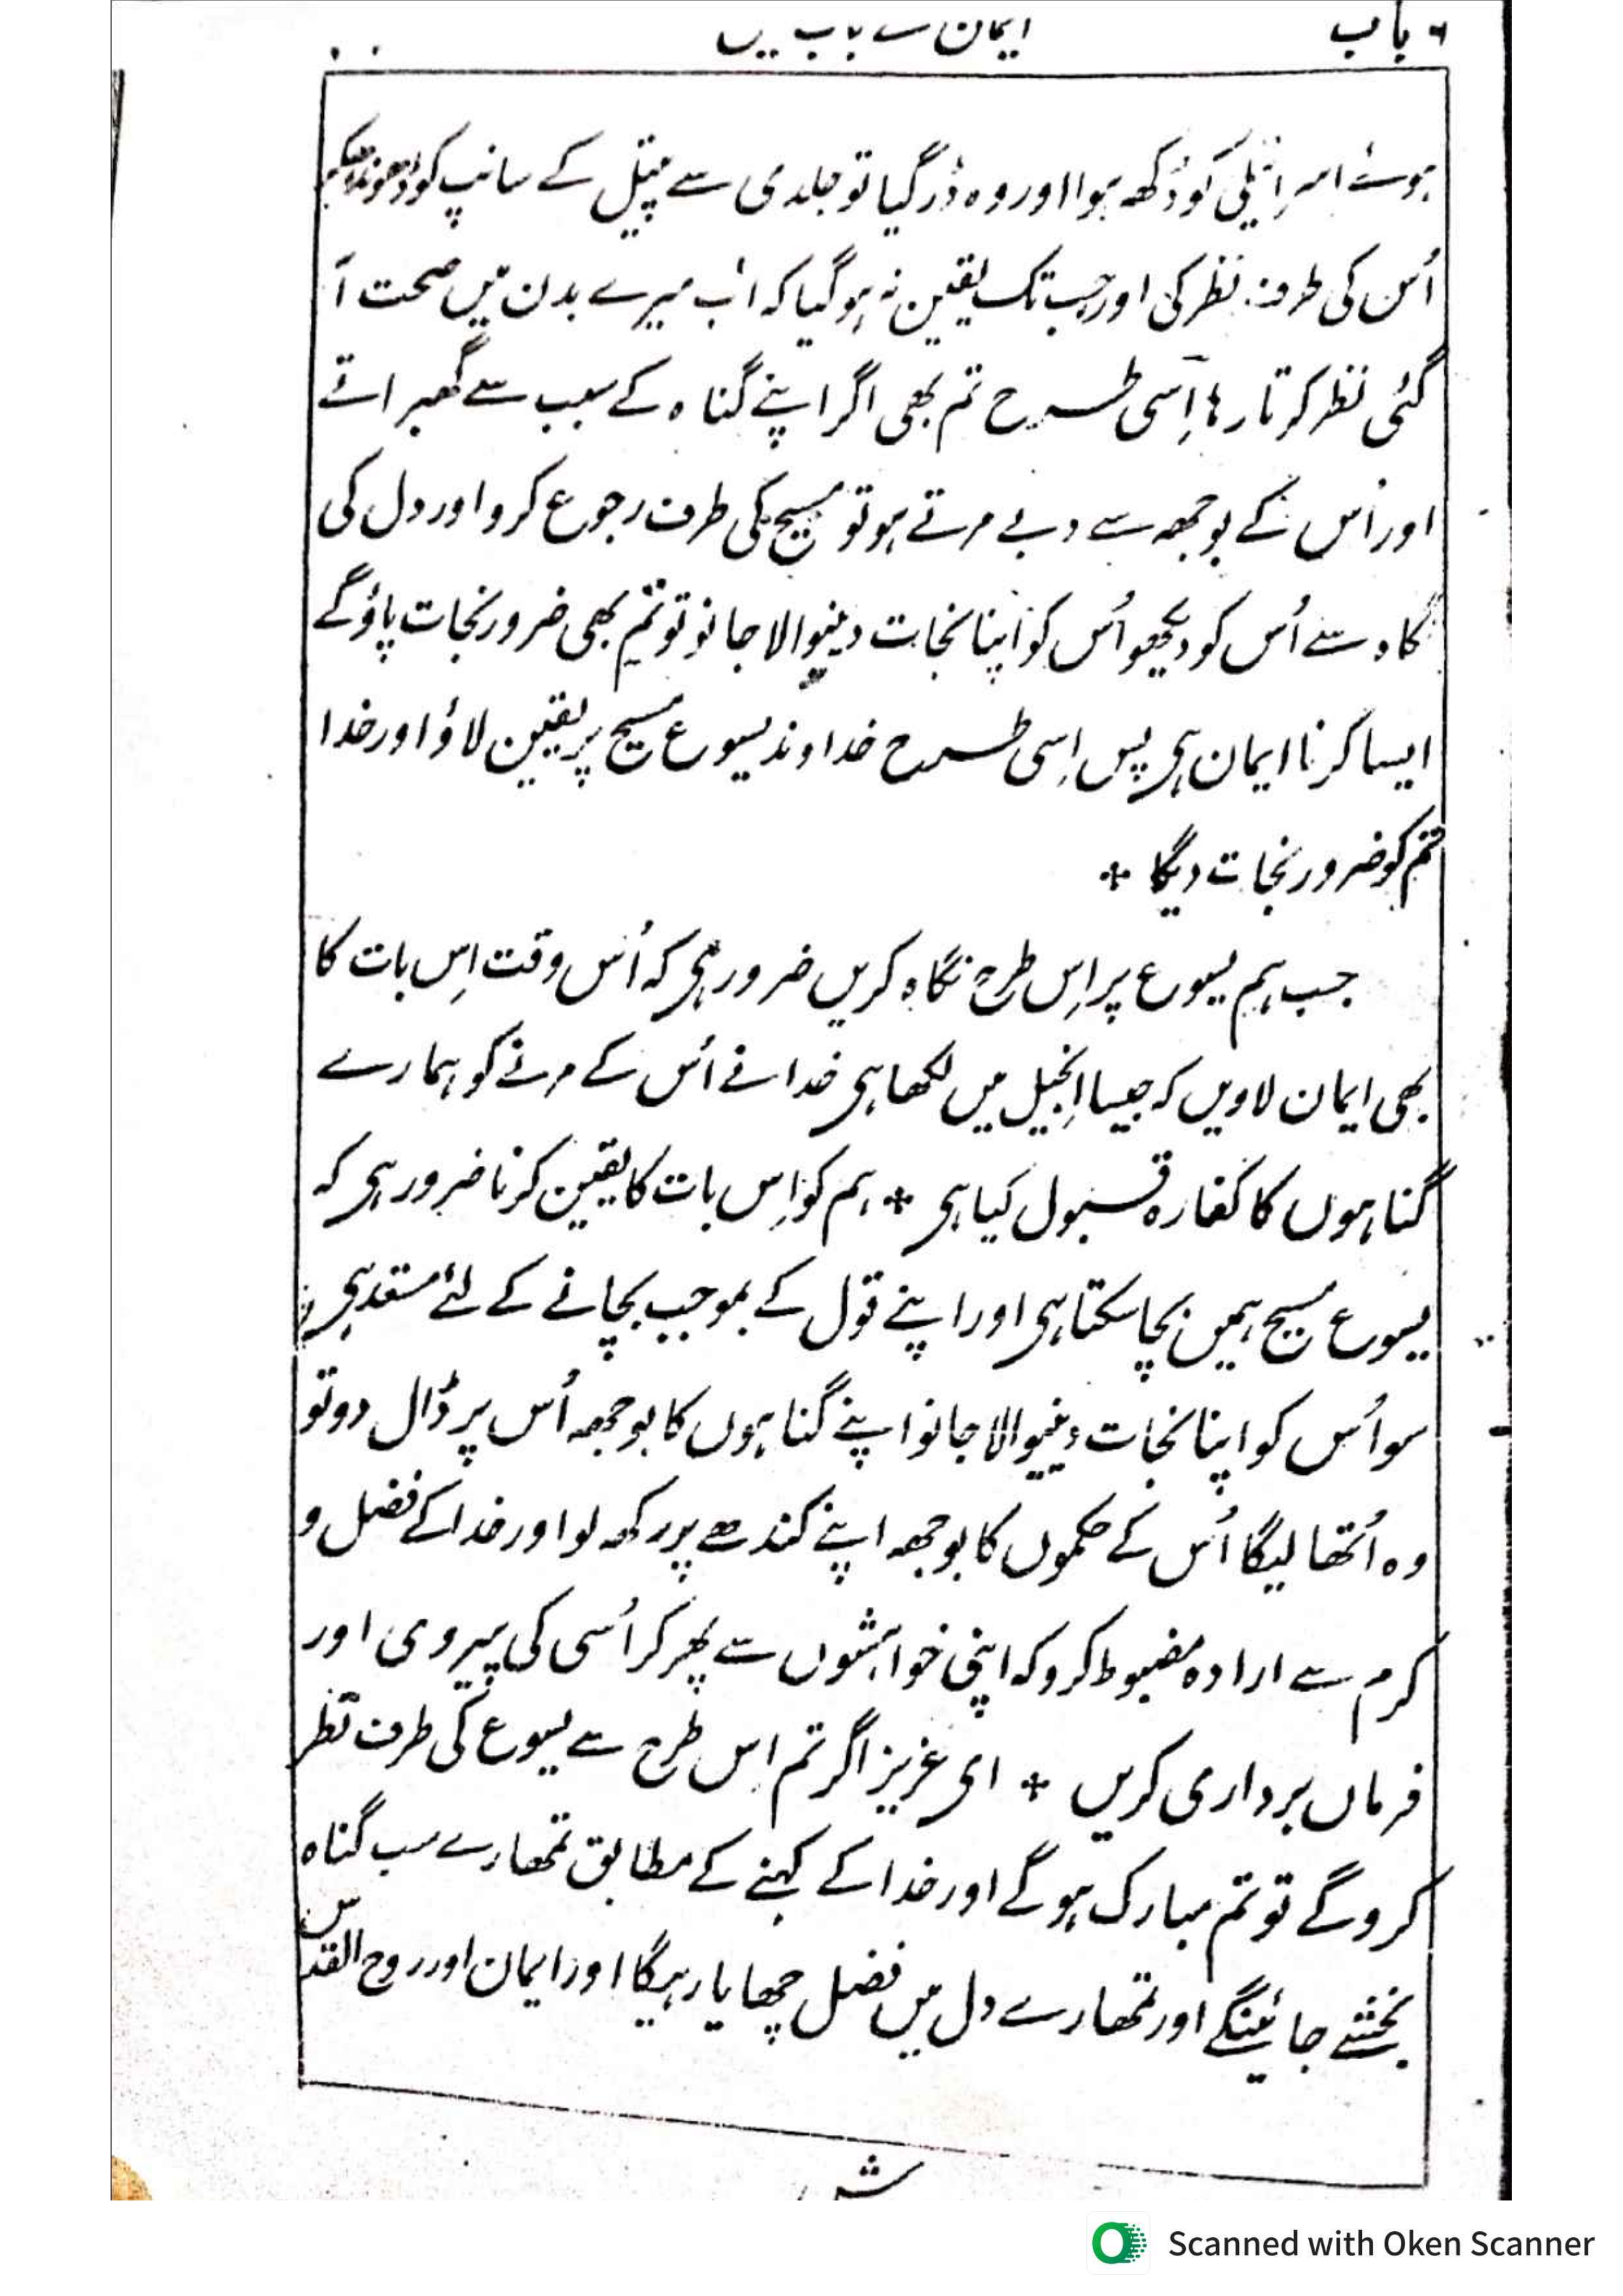 ۶ باب
ایمان کے باب میں
ہوئے اسرائیلی کو دُکھہ ہوا اور وہ ڈر گیا تو جلدی سے پیتل کے سانپ کو ڈھونڈھکے
اُس کی طرف نظر کی اور جب تک یقین نہ ہو گیا کہ اب میرے بدن میں صحت آ
گئی نظر کرتا رہا اِسی طرح تم بھی اگر اپنے گناہ کے سبب سے گھبراتے
اور اُس کے بوجھہ سے دبے مرتے ہو تو مسیح کی طرف رجوع کرو اور دل کی
نگاہ سے اُس کو دیکھو اُس کو اپنا نجات دینیوالا جانو تو تم بھی ضرور نجات پاؤگے
ایسا کرنا ایمان ہی پس اِسی طرح خداوند یسوع مسیح پر یقین لاؤ اور خدا
تم کو ضرور نجات دیگا ٭
جب ہم یسوع پر اِس طرح نگاہ کریں ضرور ہی کہ اُس وقت اِس بات کا
بھی ایمان لاویں کہ جیسا اِنجیل میں لکھا ہی خدا نے اُس کے مرنے کو ہمارے
گناہوں کا کفارہ قبول کیا ہی ٭ ہم کو اِس بات کا یقین کرنا ضرور ہی کہ
یسوع مسیح ہمیں بچا سکتا ہی اور اپنے قول کے بموجب بچانے کے لئے مستعد ہی
سو اُس کو اپنا نجات دینیوالا جانو اپنے گناہوں کا بوجھہ اُس پر ڈال دو تو
وہ اُٹھا لیگا اُس کے حکموں کا بوجھہ اپنے کندھے پر رکھہ لو اور خدا کے فضل و
کرم سے ارادہ مضبوط کرو کہ اپنی خواہشوں سے پھر کر اُسی کی پیروی اور
فرماں برداری کریں ٭ ای عزیز اگر تم اس طرح سے یسوع کی طرف نظر
کروگے تو تم مبارک ہوگے اور خدا کے کہنے کے مطابق تمھارے سب گناہ
بخشے جائینگے اور تمھارے دل میں فضل چھایا رہیگا اور ایمان اور روح القدس
Scanned with Oken Scanner